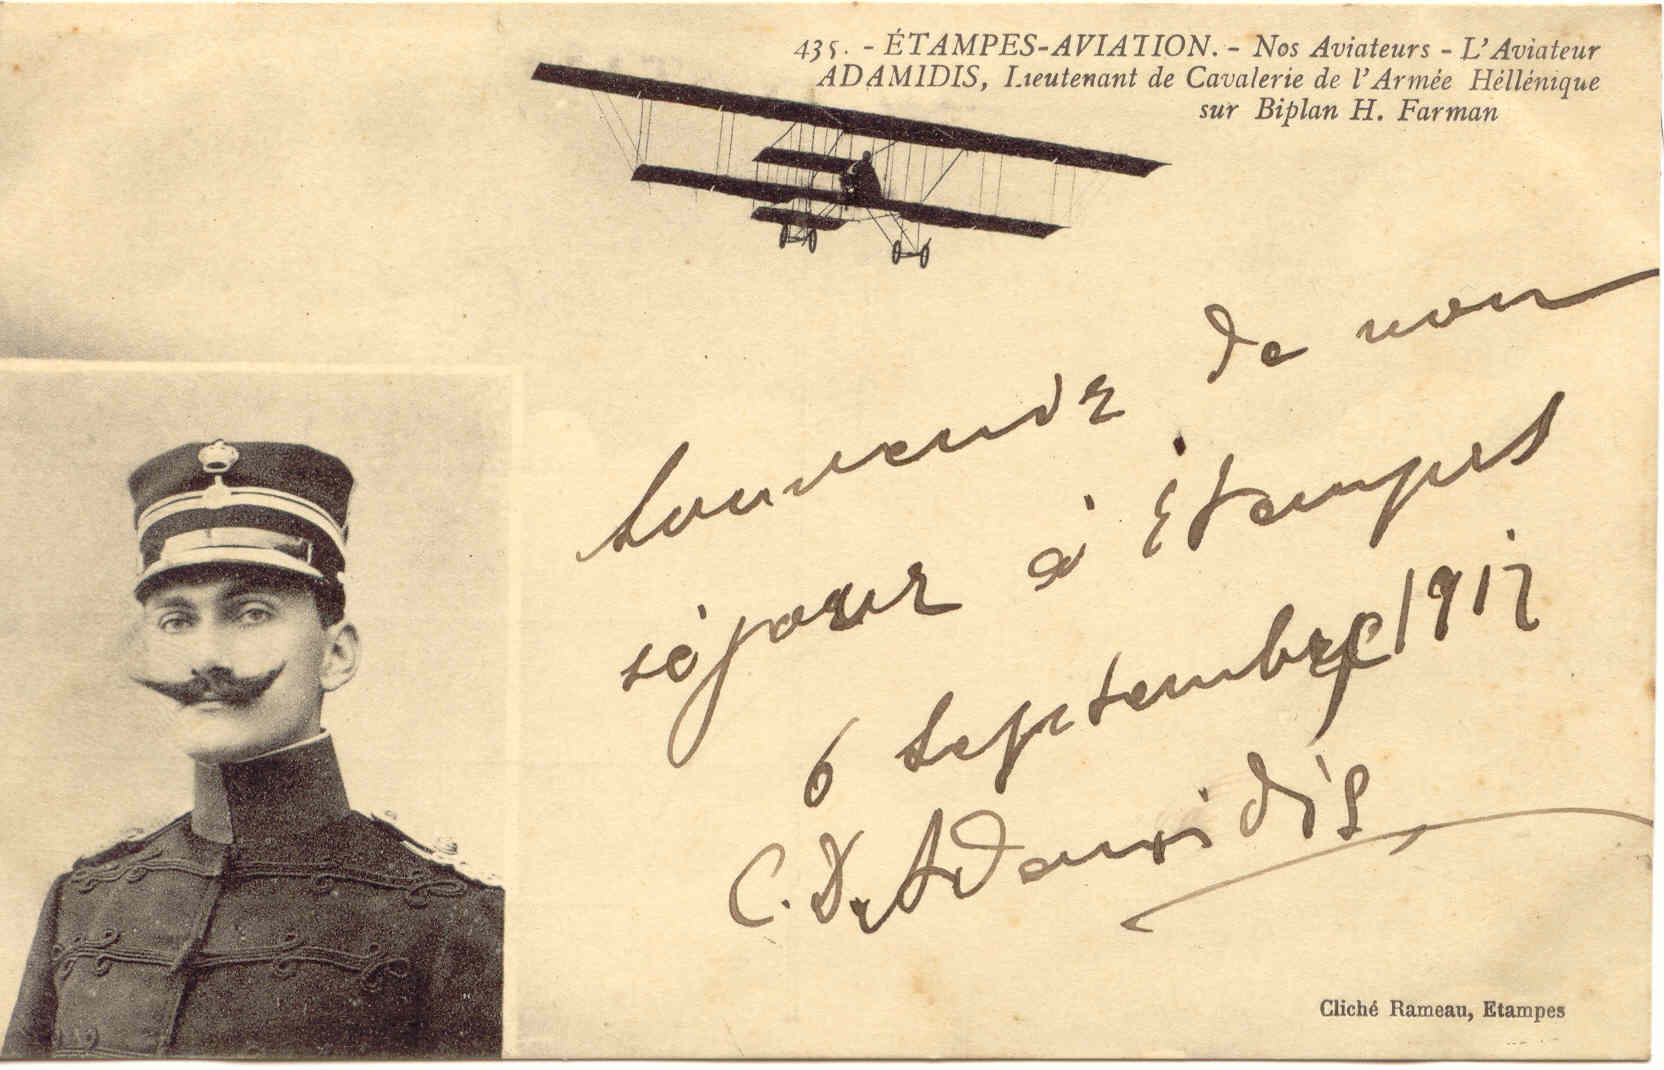 435. - ÉTAMPES-AVIATION. - Nos Aviateurs - L'Aviateur
ADAMIDIS, Lieutenant de Cavalerie de l'Armée Héllénique
sur Biplan H. Farman
Souvenir de mon
séjour à Étampes
6 Septembre 1912
C. Adamidis
Cliché Rameau, Etampes